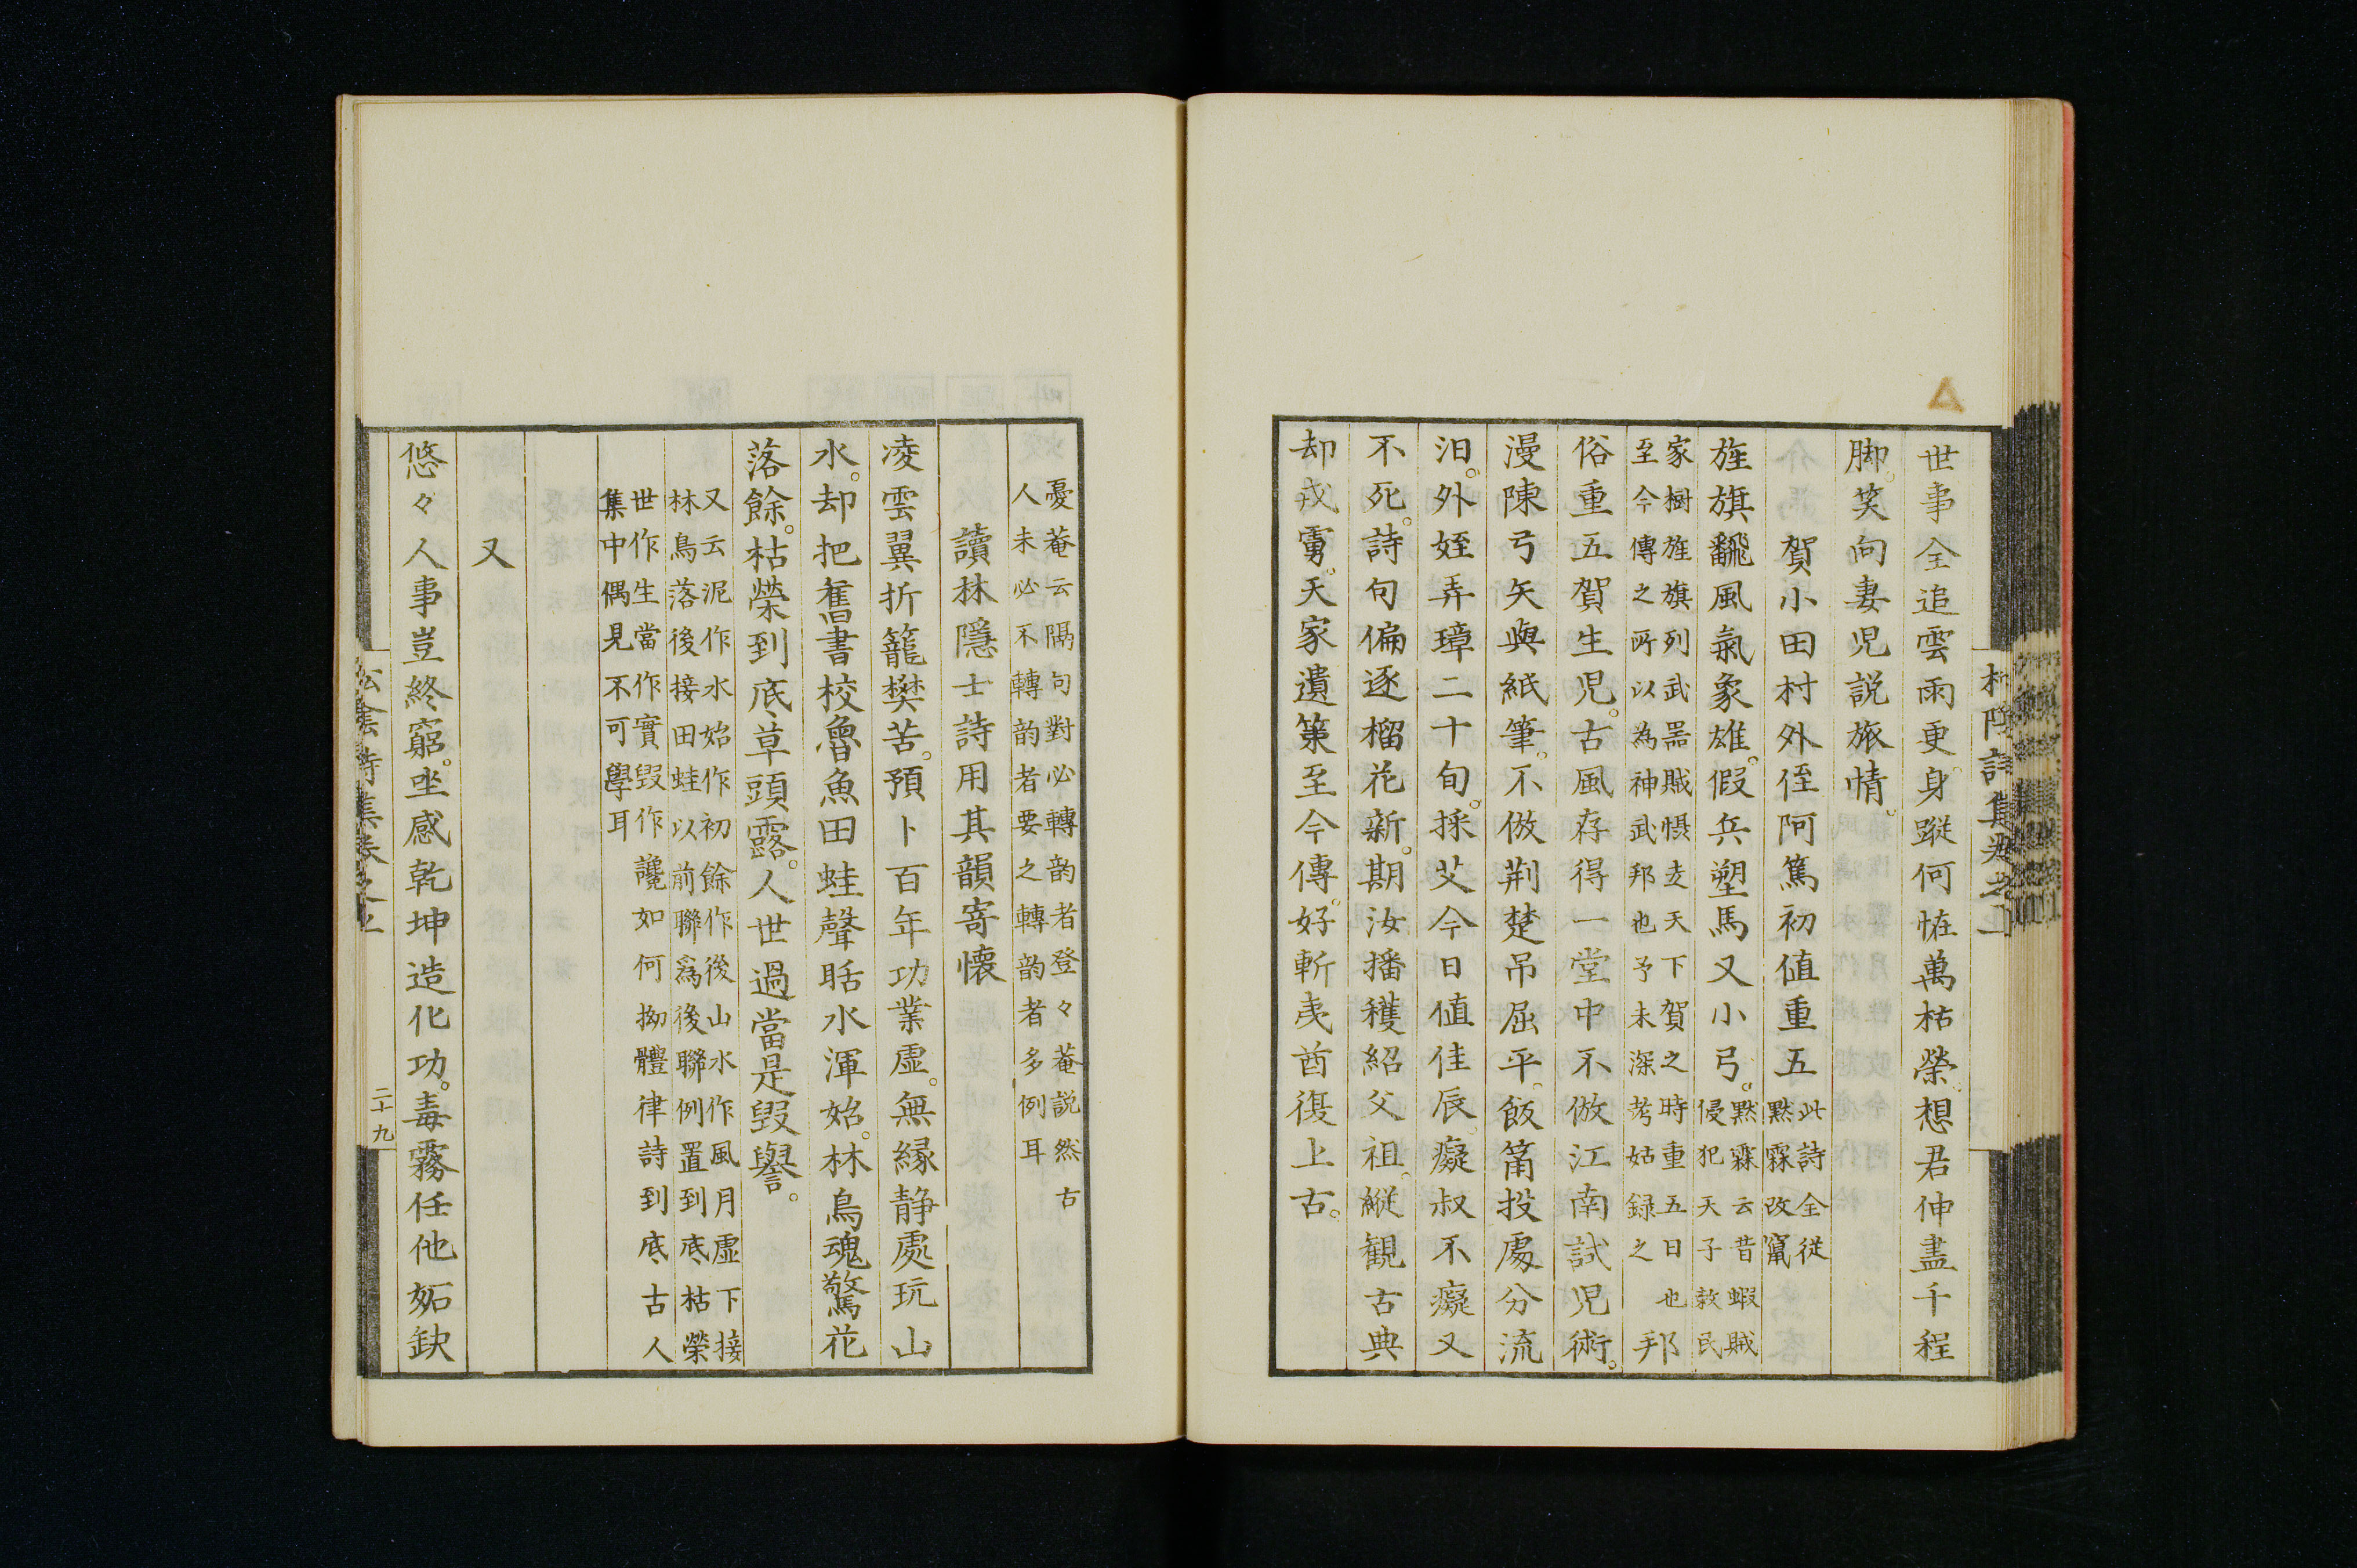 世事全追雲雨更身蹤何恠萬枯榮想君伸盡千程
脚。笑向妻児説旅情。
賀小田村外侄阿篤初値重五
此詩全従
黙霖改竄
旌旗飜風氣象雄。假兵塑馬又小弓。
黙霖云昔蝦賊
侵犯天子敕民
家樹旌旗列武器賊惧走天下賀之時重五日也邦
至今傳之所以為神武邦也予未深考姑録之手
俗重五賀生児。古風存得一堂中不倣江南試児術。
漫陳弓矢與紙筆。不倣荆楚吊屈平。飯筩投處分流
汨。外姪弄璋二十旬。採艾今日値佳辰。癡叔不癡又
不死。詩句偏逐榴花新。期汝播穫紹父祖。縦観古典
却戎虜。天家遺策至今傳。好斬夷酋復上古。
憂菴云隔句對必轉韵者登々菴説然古
人未必不轉韵者要之轉韵者多例耳
讀林隱士詩用其韻寄懐
凌雲翼折籠樊苦。預卜百年功業虚。無縁静處玩山
水。却把舊書校魯魚田蛙聲聒水渾始。林鳥魂驚花
落餘。枯榮到底草頭露。人世過當是毀譽。
又云泥作水始作初餘作後山水作風月虚下接
林鳥落後接田蛙以前聯爲後聯例置到底枯榮
世作生當作實毀作讒如何拗體律詩到底古人
集中偶見不可學耳
又
悠々人事豈終窮。坐感乾坤造化功。毒霧任他妬缺
二十九